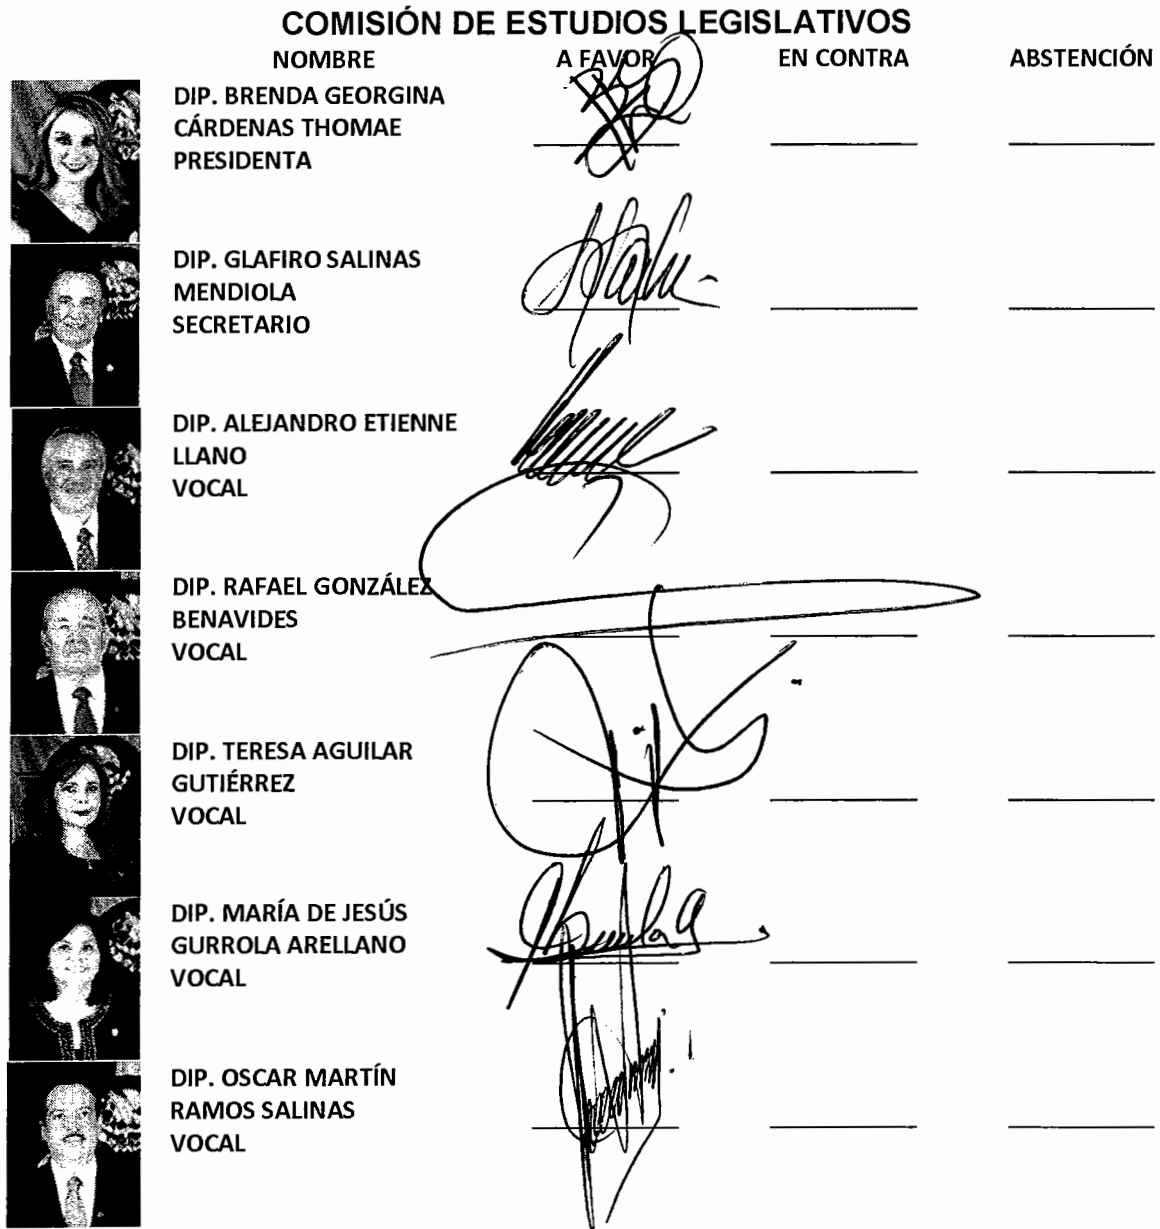 COMISIÓN DE ESTUDIOS LEGISLATIVOS
NOMBRE A FAVOR EN CONTRA ABSTENCIÓN
DIP. BRENDA GEORGINA
CÁRDENAS THOMAE
PRESIDENTA
DIP. GLAFIRO SALINAS
MENDIOLA
SECRETARIO
DIP. ALEJANDRO ETIENNE
LLANO
VOCAL
DIP. RAFAEL GONZÁLEZ
BENAVIDES
VOCAL
DIP. TERESA AGUILAR
GUTIÉRREZ
VOCAL
DIP. MARÍA DE JESÚS
GURROLA ARELLANO
VOCAL
DIP. OSCAR MARTÍN
RAMOS SALINAS
VOCAL